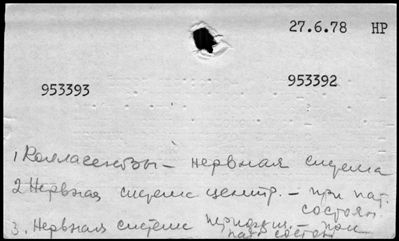 27.6.78 НР
953393 953392
1 Коллагенозы – нервная система
2 Нервная система центр. – при пат.
состоян.
3. Нервная система перифери. – при
пат. состоян